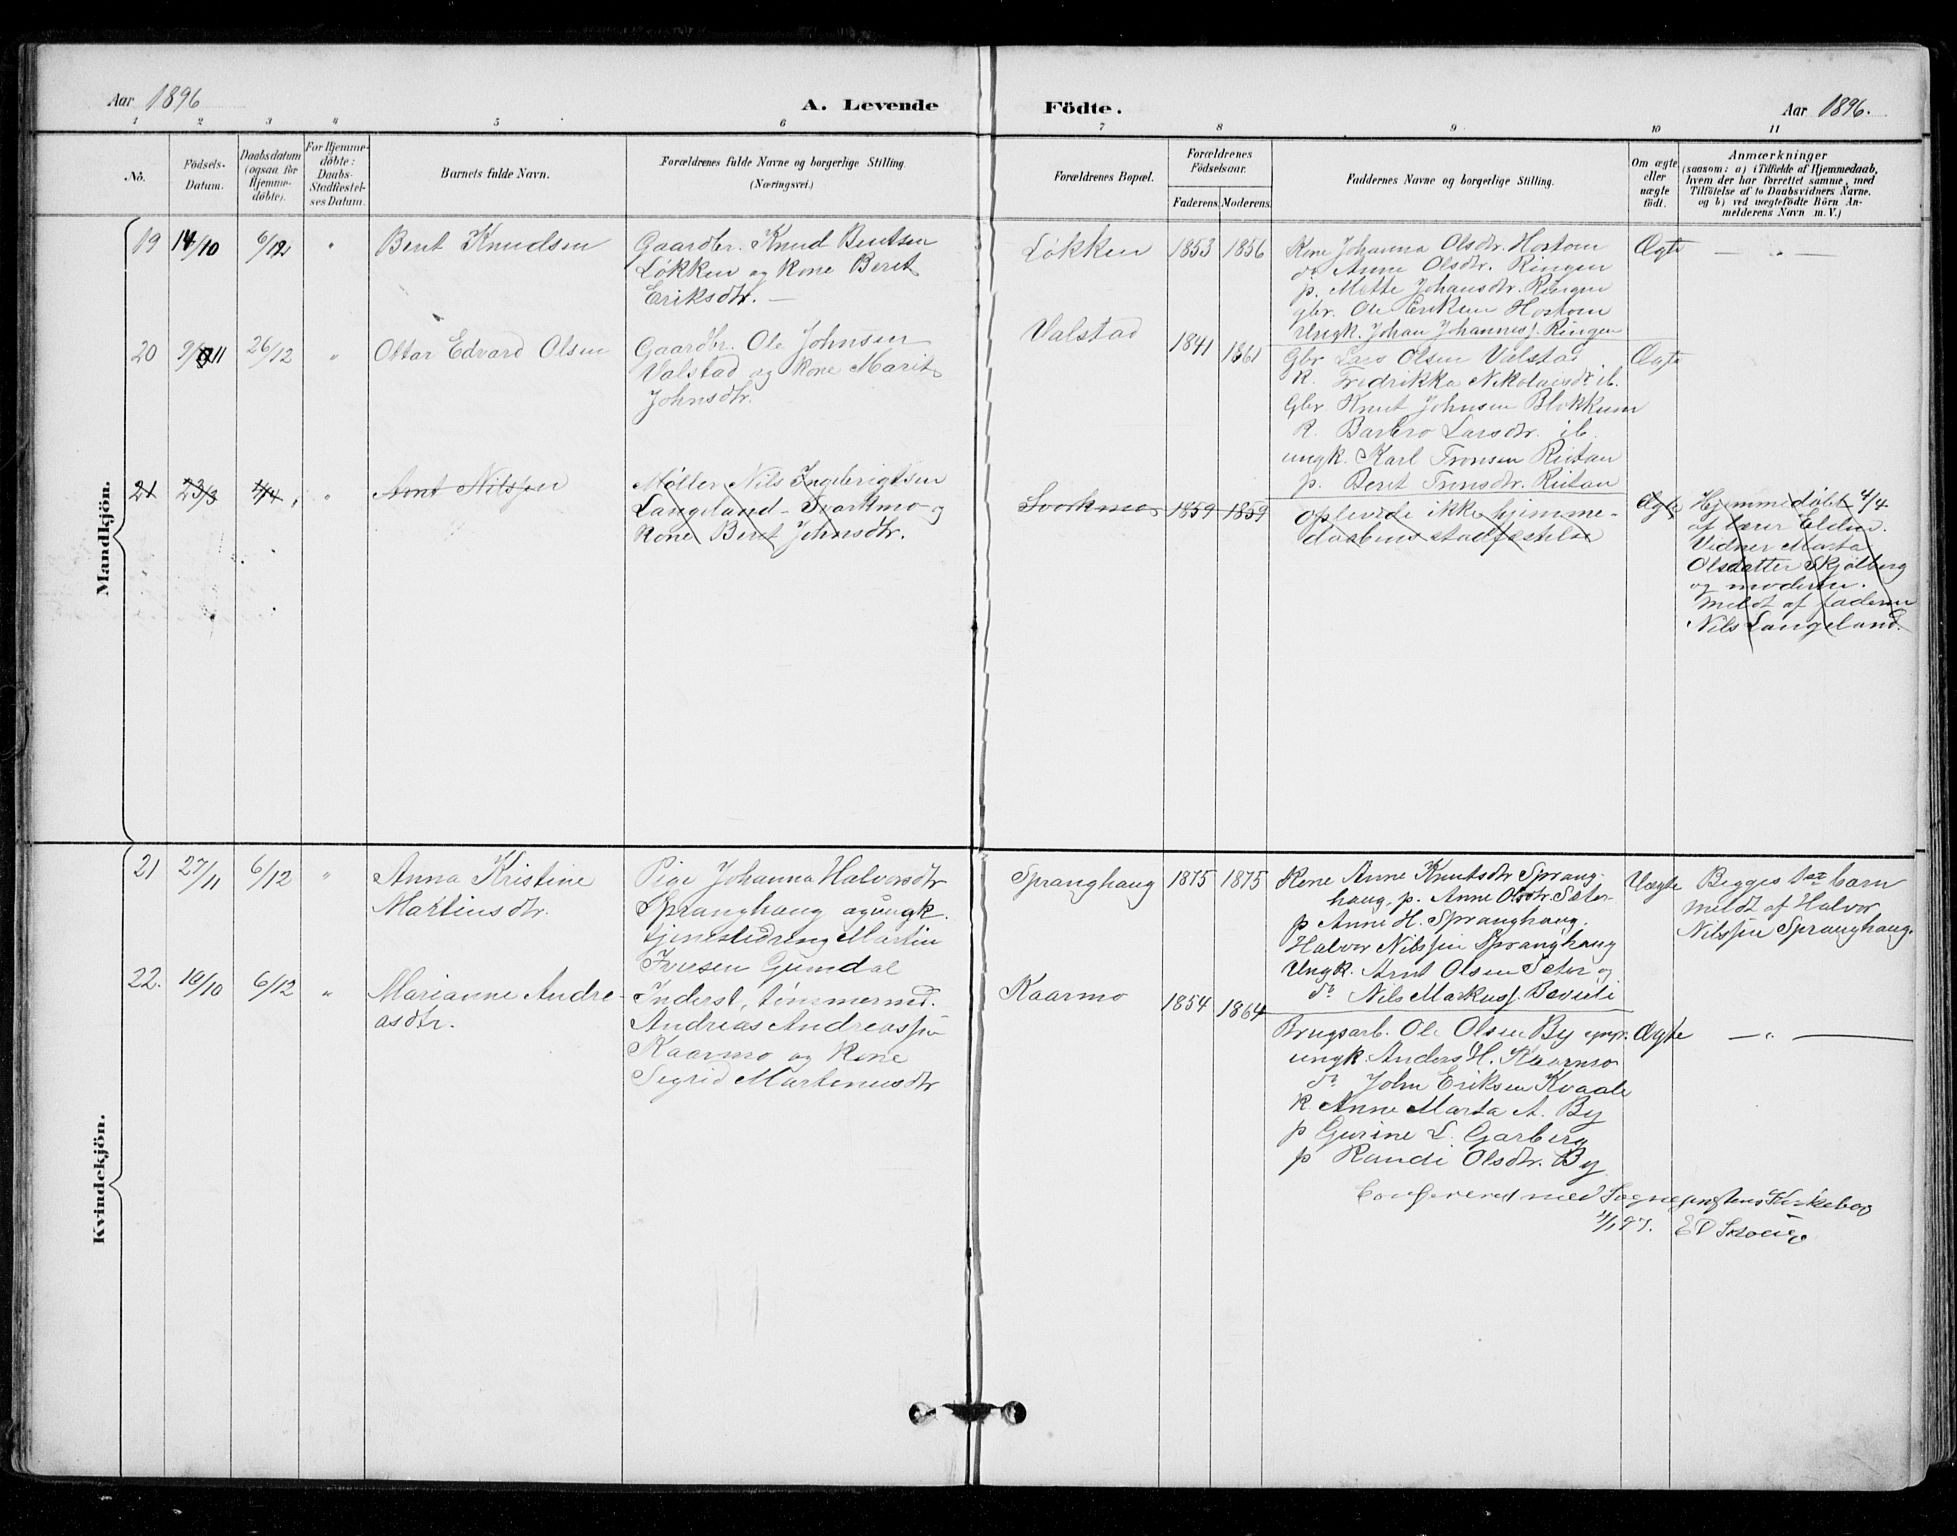 Aar 1896
A. Levende Födte.
Aar 1896.
1 2 3 4 5 6 7 8 9 10 11
No.
Födsels-
Datum.
Daabsdatum
(ogsaa for
Hjemme-
döbte).
For Hjemme-
döbte:
Daabs-
Stadfæstel-
ses Datum.
Barnets fulde Navn.
Forældrenes fulde Navne og borgerlige Stilling.
(Næringsvei.)
Forældrenes Bopæl.
Forældrenes
Födselsaar.
Faderens. Moderens.
Faddernes Navne og borgerlige Stilling.
Om ægte
eller
uægte
födt.
Anmærkninger
(saasom: a) i Tilfælde af Hjemmedaab,
hvem der har forrettet samme, med
Tilföielse af to Daabsvidners Navne,
og b) ved uægtefödte Börn An-
melderens Navn m. V.)
Mandkjön.
19 14/10 6/12 " Berit Knudsen
Gaardbr. Knud Bentsen
Løkken og Kone Beret
Eriksdtr. —
Løkken 1853 1856
Kone Johanna Olsdtr. Hostom
do Anne Olsdtr. Ringen
p. Mette Johansdtr. Ringen
gbr. Ole Eriksen Hostom
Ungk. Johan Johannesf. Ringen
Ægte — " —
20 9/11 26/12 " Ottar Edvard Olsen
Gaardbr. Ole Johnsen
Valstad og Kone Marit
Johnsdtr.
Valstad 1841 1861
Gbr Lars Olsen Valstad
K. Fredrikka Nikolaisdr ib.
Gbr. Knut Johnsen Blokkum
K. Barbro Larsdtr. ib.
ungk. Karl Tronsen Riutan
p. Beret Tronsdtr. Riutan
Ægte
21 23/3 4/4 " Arnt Nilssen
Møller Nils Ingebrigtsen
Langeland - Svorkmo og
Kone Beret Johnsdtr.
Svorkmo 1859 1859
oplevede ikke hjemme-
daabens stadfæstelse
Ægte
Hjemmedøbt 4/4
af lærer Elden.
Vidner Marta
Olsdatter Skjølberg
og moderen.
Meldt af faderen
Nils Langeland.
Kvindekjön.
21 27/11 6/12 " Anna Kristine
Martinsdtr.
Pige Johanna Halvorsdtr
Spranghaug og ungk.
tjenestedreng Martin
Iversen Gumdal
Spranghaug 1875 1875
Kone Anne Knutsdtr Sprang-
haug, p. Anne Olsdtr. Sæter
p Anne H. Spranghaug.
Halvor Nilssen Spranghaug
Ungk. Arnt Olsen Seter og
do Nils Markusf. Bevidli
Uægte
Begges 1ste barn
meldt af Halvor
Nilssen Spranghaug.
22. 10/10 6/12 " Marianne Andre-
asdtr.
Inderst, tømmermd.
Andreas Andreassen
Kaarmo og Kone
Sigrid Martinusdtr
Kaarmo 1854 1864
Brugsarb. Ole Olsen By
ungk. Anders H. Kaarmo
do John Eriksen Kvaale
K Anne Marta A. By
p Gurine L. Garberg
p Randi Olsdtr. By
Ægte — " —
Confereret med Sogneprestens Kirkebog
1/1 97.